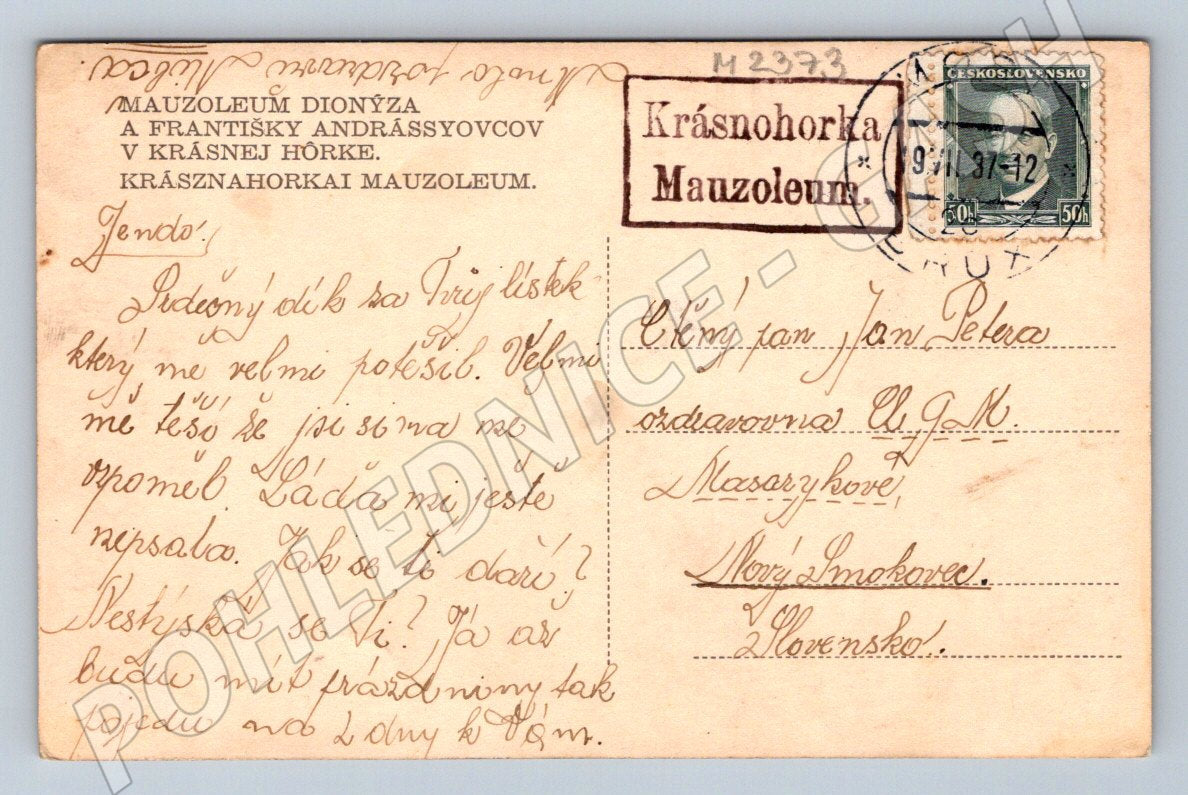 Mnoho pozdravů
M 2373
MAUZOLEUM DIONÝZA
A FRANTIŠKY ANDRÁSSYOVCOV
V KRÁSNEJ HÔRKE.
KRÁSZNAHORKAI MAUZOLEUM.
Krásnohorka
Mauzoleum.
ČESKOSLOVENSKO
50h 50h
9.VII.37-12
MOST
BRÜX
Jendo!
Srdečný dík za Tvůj lístek
který mě velmi potěšil. Velmi
mě těší že jsi si na mě
vzpoměl. Láďa mi ještě
nepsala. Jak se ti daří?
Nestýská se Ti? Já až
budu mít prázdniny tak
pojedu na 2 dny k Vám.
Ctěný pan Jan Petera
ozdravovna
Masarykově
Nový Smokovec.
Slovensko.
POHLEDNICE -